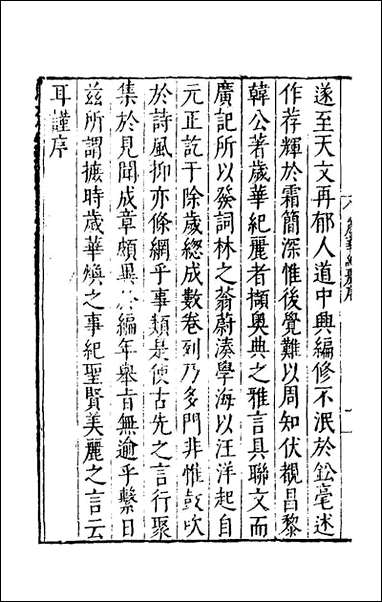 遂至天文再郁人道中興編修不泯於鈆毫述
作荐輝於霜簡深惟後覺難以周知伏覩昌黎
韓公著歲華紀麗者擷奧典之雅言具聯文而
廣記所以發詞林之蓊蔚湊學海以汪洋起自
元正訖于除歲總成數卷列乃多門非惟鼓吹
於詩風抑亦條綱乎事類是使古先之言行聚
集於見聞成章頗異編年舉言無逾乎繫日
茲所謂摭時歲華煥之事紀聖賢美麗之言云
耳謹序
歲華紀麗序